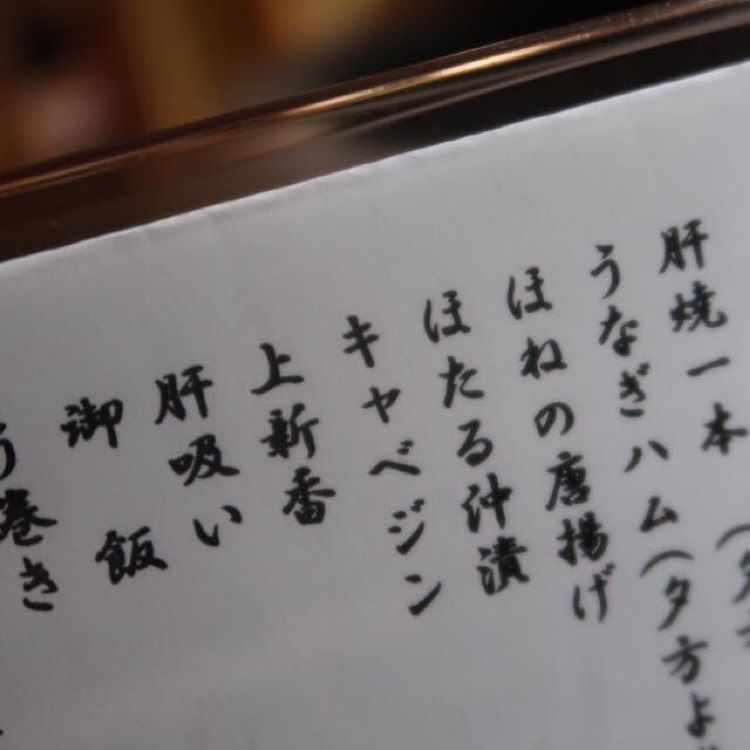 肝焼一本（夕方
うなぎハム（夕方よ
ほねの唐揚げ
ほたる沖漬
キャベジン
上新香
肝吸い
御飯
う巻き